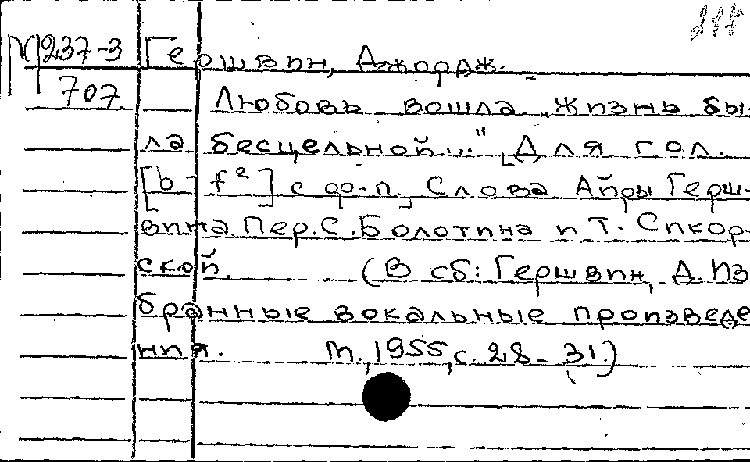 М237-3 Гершвин, Джордж.
707 Любовь вошла „Жизнь бы-
ла бесцельной..." Для гол.
[b - f²] с ф-п. Слова Айры Герш-
вина Пер. С. Болотина и Т. Сикор-
ской. (В сб: Гершвин, Д. Из
бранные вокальные произведе
ния. М., 1955, с. 28-31.)